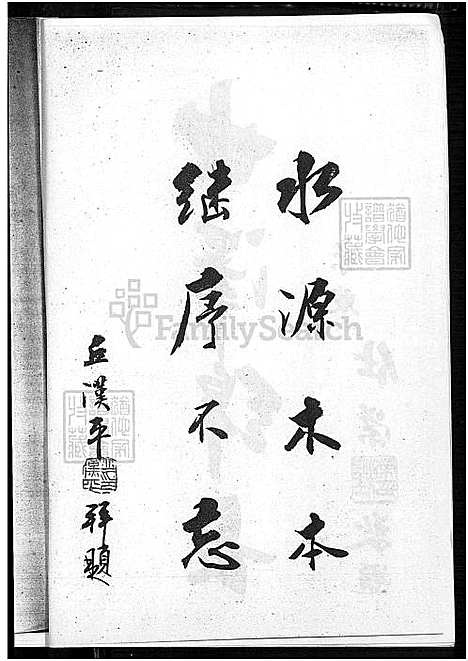 水源木本
继序不忘
丘漢平 拜題
FamilySearch